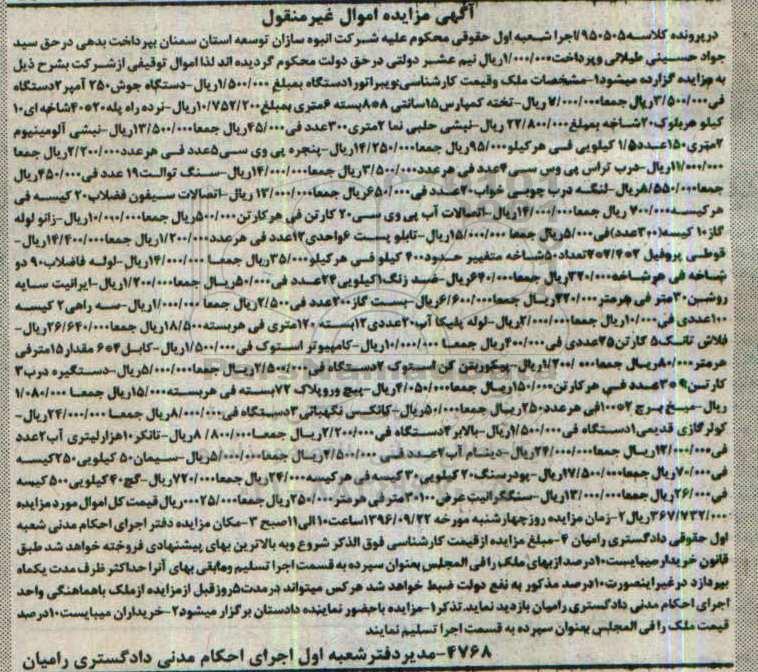 آگهی مزایده اموال غیرمنقول
درپرونده کلاسه۹۵۰۵۰۵/اجرا شعبه اول حقوقی محکوم علیه شرکت انبوه سازان توسعه استان سمنان بپرداخت بدهی درحق سید
جواد حسینی طیلانی وپرداخت۱/۰۰۰/۰۰۰ریال نیم عشر دولتی درحق دولت محکوم گردیده اند لذا اموال توقیفی ازشرکت بشرح ذیل
به مزایده گزارده میشود۱-مشخصات ملک وقیمت کارشناسی:ویبراتور۱دستگاه بمبلغ ۱/۵۰۰/۰۰۰ریال-دستگاه جوش۲۵۰ آمپر۲دستگاه
فی۳/۵۰۰/۰۰۰ریال جمعا۷/۰۰۰/۰۰۰ ریال-تخته کمپارس۱۵سانتی ۸*۸بسته ۶متری بمبلغ۱۰/۷۵۲/۲۰۰ریال-نرده راه پله۲۰*۴۰شاخه ای۱۰
کیلو هربلوک۲۰شاخه بمبلغ۲۲/۸۰۰/۰۰۰ ریال-نبشی حلبی نما ۲متری۳۰۰عدد فی۴۵/۰۰۰ریال جمعا۱۳/۵۰۰/۰۰۰ریال-نبشی آلومینیوم
۲متری۱۵۰عدد۱/۵ کیلویی فی هرکیلو۹۵/۰۰۰ریال جمعا۱۴/۲۵۰/۰۰۰ریال-پنجره پی وی سی۵عدد فی هرعدد۲/۲۰۰/۰۰۰ریال جمعا
۱۱/۰۰۰/۰۰۰ریال-درب تراس پی وی سی۴عدد فی هرعدد۳/۵۰۰/۰۰۰ریال جمعا۱۴/۰۰۰/۰۰۰ریال-سنگ توالت۱۹ عدد فی۴۵۰/۰۰۰ریال
جمعا۸/۵۵۰/۰۰۰ریال-لنگه درب چوبی خواب۲۰عدد فی۶۵۰/۰۰۰ریال جمعا۱۳/۰۰۰/۰۰۰ ریال-اتصالات سیفون فضلاب۲۰ کیسه فی
هرکیسه۷۰۰/۰۰۰ ریال جمعا۱۴/۰۰۰/۰۰۰ریال-اتصالات آب پی وی سی۲۰ کارتن فی هرکارتن۵۰۰/۰۰۰ریال جمعا۱۰/۰۰۰/۰۰۰ریال-زانو لوله
گاز۱۰ کیسه(۳۰۰عدد)فی۵/۰۰۰ریال جمعا ۱۵/۰۰۰/۰۰۰ریال-تابلو پست ۶واحدی۱۲عدد فی هرعدد۱/۲۰۰/۰۰۰ریال جمعا۱۴/۴۰۰/۰۰۰ریال-
قوطی پروفیل ۲*۴/۲*۲تعداد۵۰شاخه متغییر حدود۴۰۰ کیلو فی هرکیلو۳۵/۰۰۰ریال جمعا ۱۴/۰۰۰/۰۰۰ریال-لوله فاضلاب۹۰ دو
شاخه فی هرشاخه۳۲۰/۰۰۰ریال جمعا۶۴۰/۰۰۰ریال-ضد زنگ۱کیلویی۲۴عدد فی۵۰/۰۰۰ریال جمعا۱/۲۰۰/۰۰۰ریال-ایرانیت سایه
روشن۳۰متر فی هرمتر۲۲۰/۰۰۰ریال جمعا۶/۶۰۰/۰۰۰ریال-بست گاز۲۰۰عدد فی۲/۵۰۰ریال جمعا ۱/۰۰۰/۰۰۰ریال-سه راهی۲ کیسه
۱۰۰عددی فی۱۰/۰۰۰ریال جمعا۲/۰۰۰/۰۰۰ریال-لوله پلیکا آب۲۰عددی۱۲بسته ۱۲۰متری فی هربسته۱۸/۵۰۰ریال جمعا۲۶/۶۴۰/۰۰۰ریال-
فلاش تانک۵ کارتن۲۵عددی فی۴۰۰/۰۰۰ریال جمعا ۱۰/۰۰۰/۰۰۰ریال-کامپیوتر استوک فی۱/۵۰۰/۰۰۰ریال-کابل۴*۶ مقدار۱۵مترفی
هرمتر۸۰/۰۰۰ریال جمعا۱/۲۰۰/۰۰۰ریال-پیکوربتن کن استوک ۲دستگاه فی۲/۵۰۰/۰۰۰ریال جمعا۵/۰۰۰/۰۰۰ریال-دستگیره درب۳
کارتن۹*۳عدد فی هرکارتن۱۵۰/۰۰۰ریال جمعا۴/۰۵۰/۰۰۰ریال-پیچ ورولپلاک ۷۲بسته فی هربسته۱۵/۰۰۰ریال جمعا ۱/۰۸۰/۰۰۰
ریال-میخ برج ۲*۱۰۰فی هرعدد۲۵۰ریال جمعا۵۰/۰۰۰ریال-کانکس نگهبانی۳دستگاه فی۸/۰۰۰/۰۰۰ریال جمعا ۲۴/۰۰۰/۰۰۰ریال-
کولرگازی قدیمی۱دستگاه فی۱/۵۰۰/۰۰۰ریال-بالابر۴دستگاه فی۲/۲۰۰/۰۰۰ریال جمعا۸/۸۰۰/۰۰۰ریال-تانکر۱۰هزارلیتری آب۲عدد
فی۱۲/۰۰۰/۰۰۰ریال جمعا۲۴/۰۰۰/۰۰۰ریال-دینام آب۲عدد فی ۲/۵۰۰/۰۰۰ریال جمعا۵/۰۰۰/۰۰۰ریال-سیمان۵۰ کیلویی۲۵۰کیسه
فی۷۰/۰۰۰ریال جمعا۱۷/۵۰۰/۰۰۰ریال-پودرسنگ۲۰ کیلویی۳۰ کیسه فی هرکیسه۲۴/۰۰۰ریال جمعا۷۲۰/۰۰۰ریال-گچ۴۰کیلویی۵۰۰ کیسه
فی۲۶/۰۰۰ریال جمعا۱۳/۰۰۰/۰۰۰ریال-سنگگرانیت عرض۱۰*۳۰متر فی هرمتر۲۵۰/۰۰۰ریال جمعا۲۵/۰۰۰/۰۰۰ریال قیمت کل اموال مورد مزایده
۳۶۷/۷۳۲/۰۰۰ریال۲-زمان مزایده روزچهارشنبه مورخه ۱۳۹۶/۰۹/۲۲ساعت۱۰الی۱۱صبح ۳-مکان مزایده دفتر اجرای احکام مدنی شعبه
اول حقوقی دادگستری رامیان ۴-مبلغ مزایده ازقیمت کارشناسی فوق الذکر شروع وبه بالاترین بهای پیشنهادی فروخته خواهد شد طبق
قانون خریدارمیبایست۱۰درصد ازبهای ملک رافی المجلس بعنوان سپرده به قسمت اجرا تسلیم ومابقی بهای آنرا حداکثر ظرف مدت یکماه
بپردازد درغیراینصورت۱۰درصد مذکور به نفع دولت ضبط خواهد شد هرکس میتواند درمدت۵روزقبل ازمزایده ازملک باهماهنگی واحد
اجرای احکام مدنی دادگستری رامیان بازدید نماید تذکر۱-مزایده باحضور نماینده دادستان برگزار میشود۲-خریداران میبایست۱۰درصد
قیمت ملک رافی المجلس بعنوان سپرده به قسمت اجرا تسلیم نمایند
۴۷۶۸-مدیردفترشعبه اول اجرای احکام مدنی دادگستری رامیان